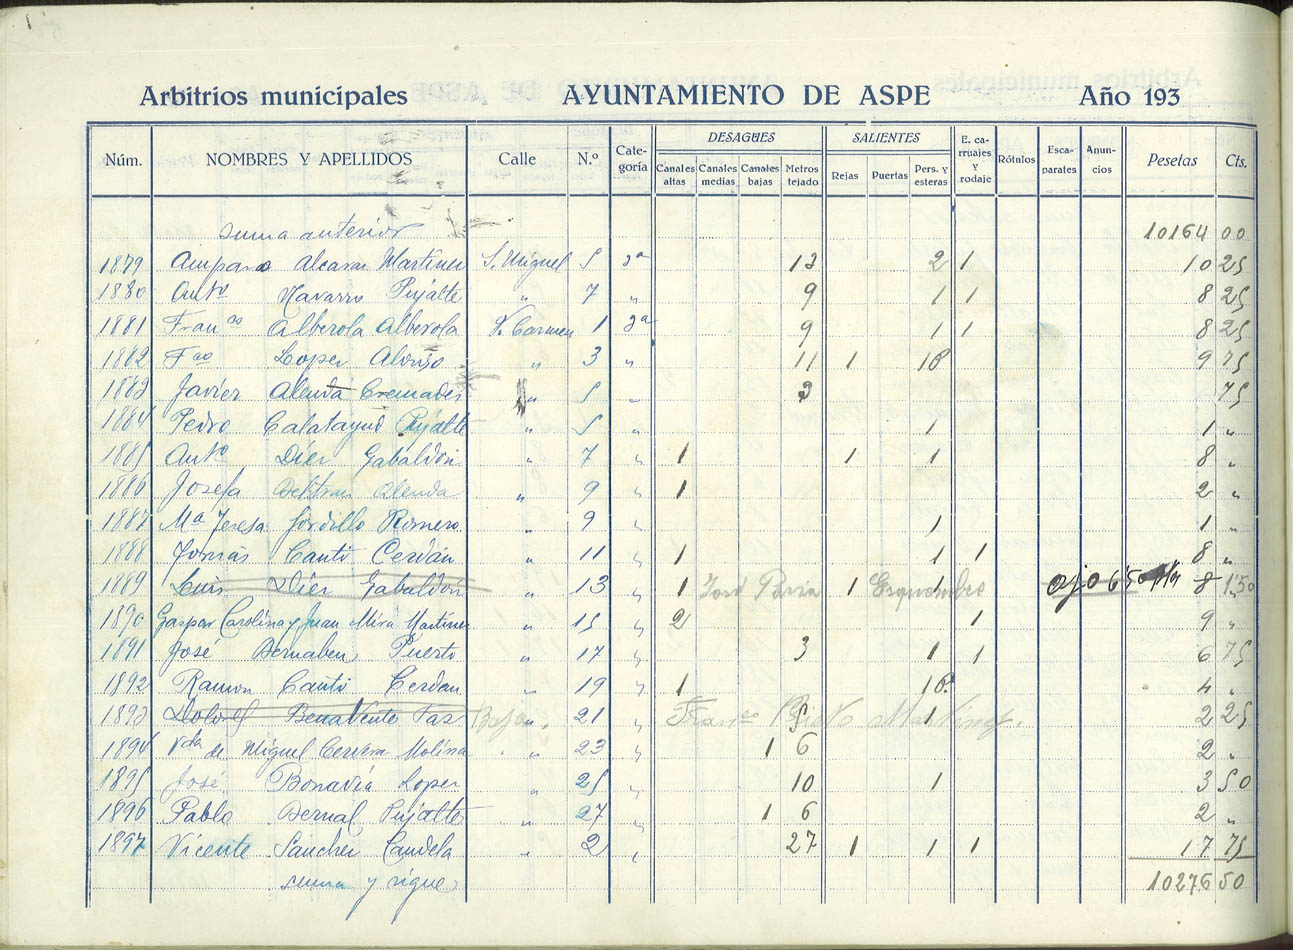 Arbitrios municipales AYUNTAMIENTO DE ASPE Año 193
DESAGÜES SALIENTES
Núm. NOMBRES Y APELLIDOS Calle N.º Cate-goría Canales altas Canales medias Canales bajas Metros tejado Rejas Puertas Pers. y esteras E. ca-rruajes y rodaje Rótulos Esca-parates Anun-cios Pesetas Cts.
suma anterior 10164 00
1879 Amparo Alcaraz Martinez S. Miguel 5 3ª 13 2 1 10 25
1880 Antº Navarro Pujalte " 7 " 9 1 1 8 25
1881 Franᶜᵒ Alberola Alberola V. Carmen 1 3ª 9 1 1 8 25
1882 Fᶜᵒ Lopez Alonso " 3 " 11 1 1P 9 75
1883 Javier Alenda Cremades " 5 " 3 75
1884 Pedro Calatayud Pujalte " 5 " 1 1 "
1885 Antº Diez Gabaldón " 7 " 1 1 1 8 "
1886 Josefa Beltran Alenda " 9 " 1 2 "
1887 Mª Teresa Gordillo Romero " 9 " 1 1 "
1888 Tomás Cantó Cerdán " 11 " 1 1 1 8 "
1889 Luis Diez Gabaldón " 13 " 1 José Pavia 1 Esquembre 1 ojo 6'50 8 1'50
1890 Gaspar Carolina y Juan Mira Martinez " 15 " 2 1 9 "
1891 José Bernabeu Puerto " 17 " 3 1 1 6 75
1892 Ramon Cantó Cerdan " 19 " 1 1P. 4 "
1893 Dolores Benavento Paz Baja " 21 " Franᶜᵒ 5 Martinez 1 2 25
1894 Vda de Miguel Cervera Molina " 23 " 1 6 2 "
1895 José Bonavia Lopez " 25 " 10 1 3 50
1896 Pablo Bernal Pujalte " 27 " 1 6 2 "
1897 Vicente Sanchez Candela " 2 " 27 1 1 1 17 75
suma y sigue 10276 50